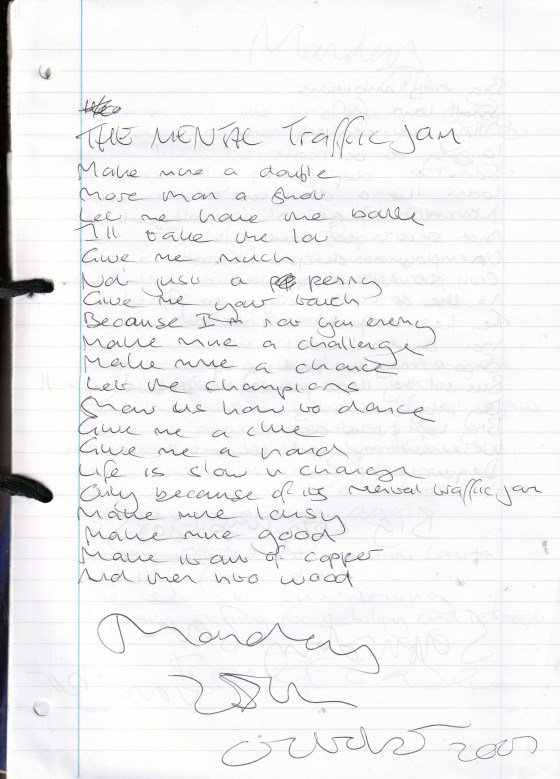 THE MENTAL Traffic Jam
Make mine a double
More than a shot
Let me have the bottle
I'll take the lot
Give me much
Not just a penny
Give me your touch
Because I'm not your enemy
Make mine a challenge
Make mine a chance
Let the champions
Show us how to dance
Give me a clue
Give me a hand
Life is slow n change
Only because of its mental traffic jam
Make mine lousy
Make mine good
Make it out of copper
And then into wood
Monday
25th
October 2007